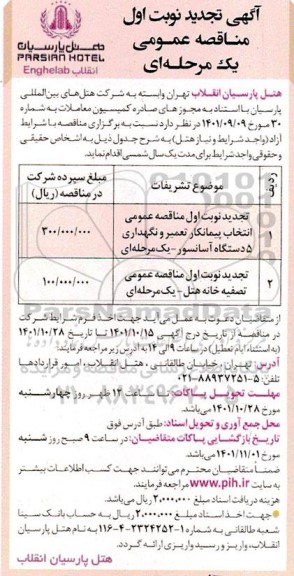 آگهی تجدید نوبت اول
مناقصه عمومی
یک مرحله‌ای
هتل پارسیان
PARSIAN HOTEL
Enghelab انقلاب
هتل پارسیان انقلاب تهران وابسته به شرکت هتل‌های بین‌المللی
پارسیان با استناد به مجوزهای صادره کمیسیون معاملات به شماره
۳۰ مورخ ۱۴۰۱/۰۹/۰۹ در نظر دارد نسبت به برگزاری مناقصه با شرایط
آزاد (واجد شرایط و نیاز هتل) به شرح جدول ذیل به اشخاص حقیقی
و حقوقی واجد شرایط برای مدت یک سال شمسی اقدام نماید.
ردیف
موضوع تشریفات
مبلغ سپرده شرکت
در مناقصه (ریال)
۱
تجدید نوبت اول مناقصه عمومی
انتخاب پیمانکار تعمیر و نگهداری
۵ دستگاه آسانسور - یک مرحله‌ای
۳۰۰/۰۰۰/۰۰۰
۲
تجدید نوبت اول مناقصه عمومی
تصفیه خانه هتل - یک مرحله‌ای
۱۰۰/۰۰۰/۰۰۰
از متقاضیان دعوت به عمل می آید جهت اخذ فرم شرایط شرکت
در مناقصه از تاریخ درج آگهی ۱۴۰۱/۱۰/۱۵ تا تاریخ ۱۴۰۱/۱۰/۲۸
(به استثناء ایام تعطیل) در ساعات ۹ الی ۱۴ به آدرس زیر مراجعه فرمایند.
آدرس: تهران، خیابان طالقانی، هتل انقلاب، امور قراردادها
تلفن: ۵-۸۸۹۳۷۲۵۱-۰۲۱
مهلت تحویل پاکات: تا ساعت ۱۲ ظهر روز چهارشنبه
مورخ ۱۴۰۱/۱۰/۲۸ می‌باشد.
محل جمع آوری و تحویل اسناد: طبق آدرس فوق
تاریخ بازگشایی پاکات متقاضیان: در ساعت ۹ صبح روز شنبه
مورخ ۱۴۰۱/۱۱/۰۱ می‌باشد.
ضمناً متقاضیان محترم می‌توانند جهت کسب اطلاعات بیشتر
به سایت www.pih.ir مراجعه فرمایند.
هزینه دریافت اسناد مبلغ ۲،۰۰۰،۰۰۰ ریال می‌باشد.
جهت اخذ اسناد مبلغ ۲،۰۰۰،۰۰۰ ریال به حساب بانک سینا
شعبه طالقانی به شماره ۱-۲۳۲۴۲۵۲-۴-۱۱۶ به نام هتل پارسیان
انقلاب، واریز و رسید واریزی ارائه گردد.
هتل پارسیان انقلاب